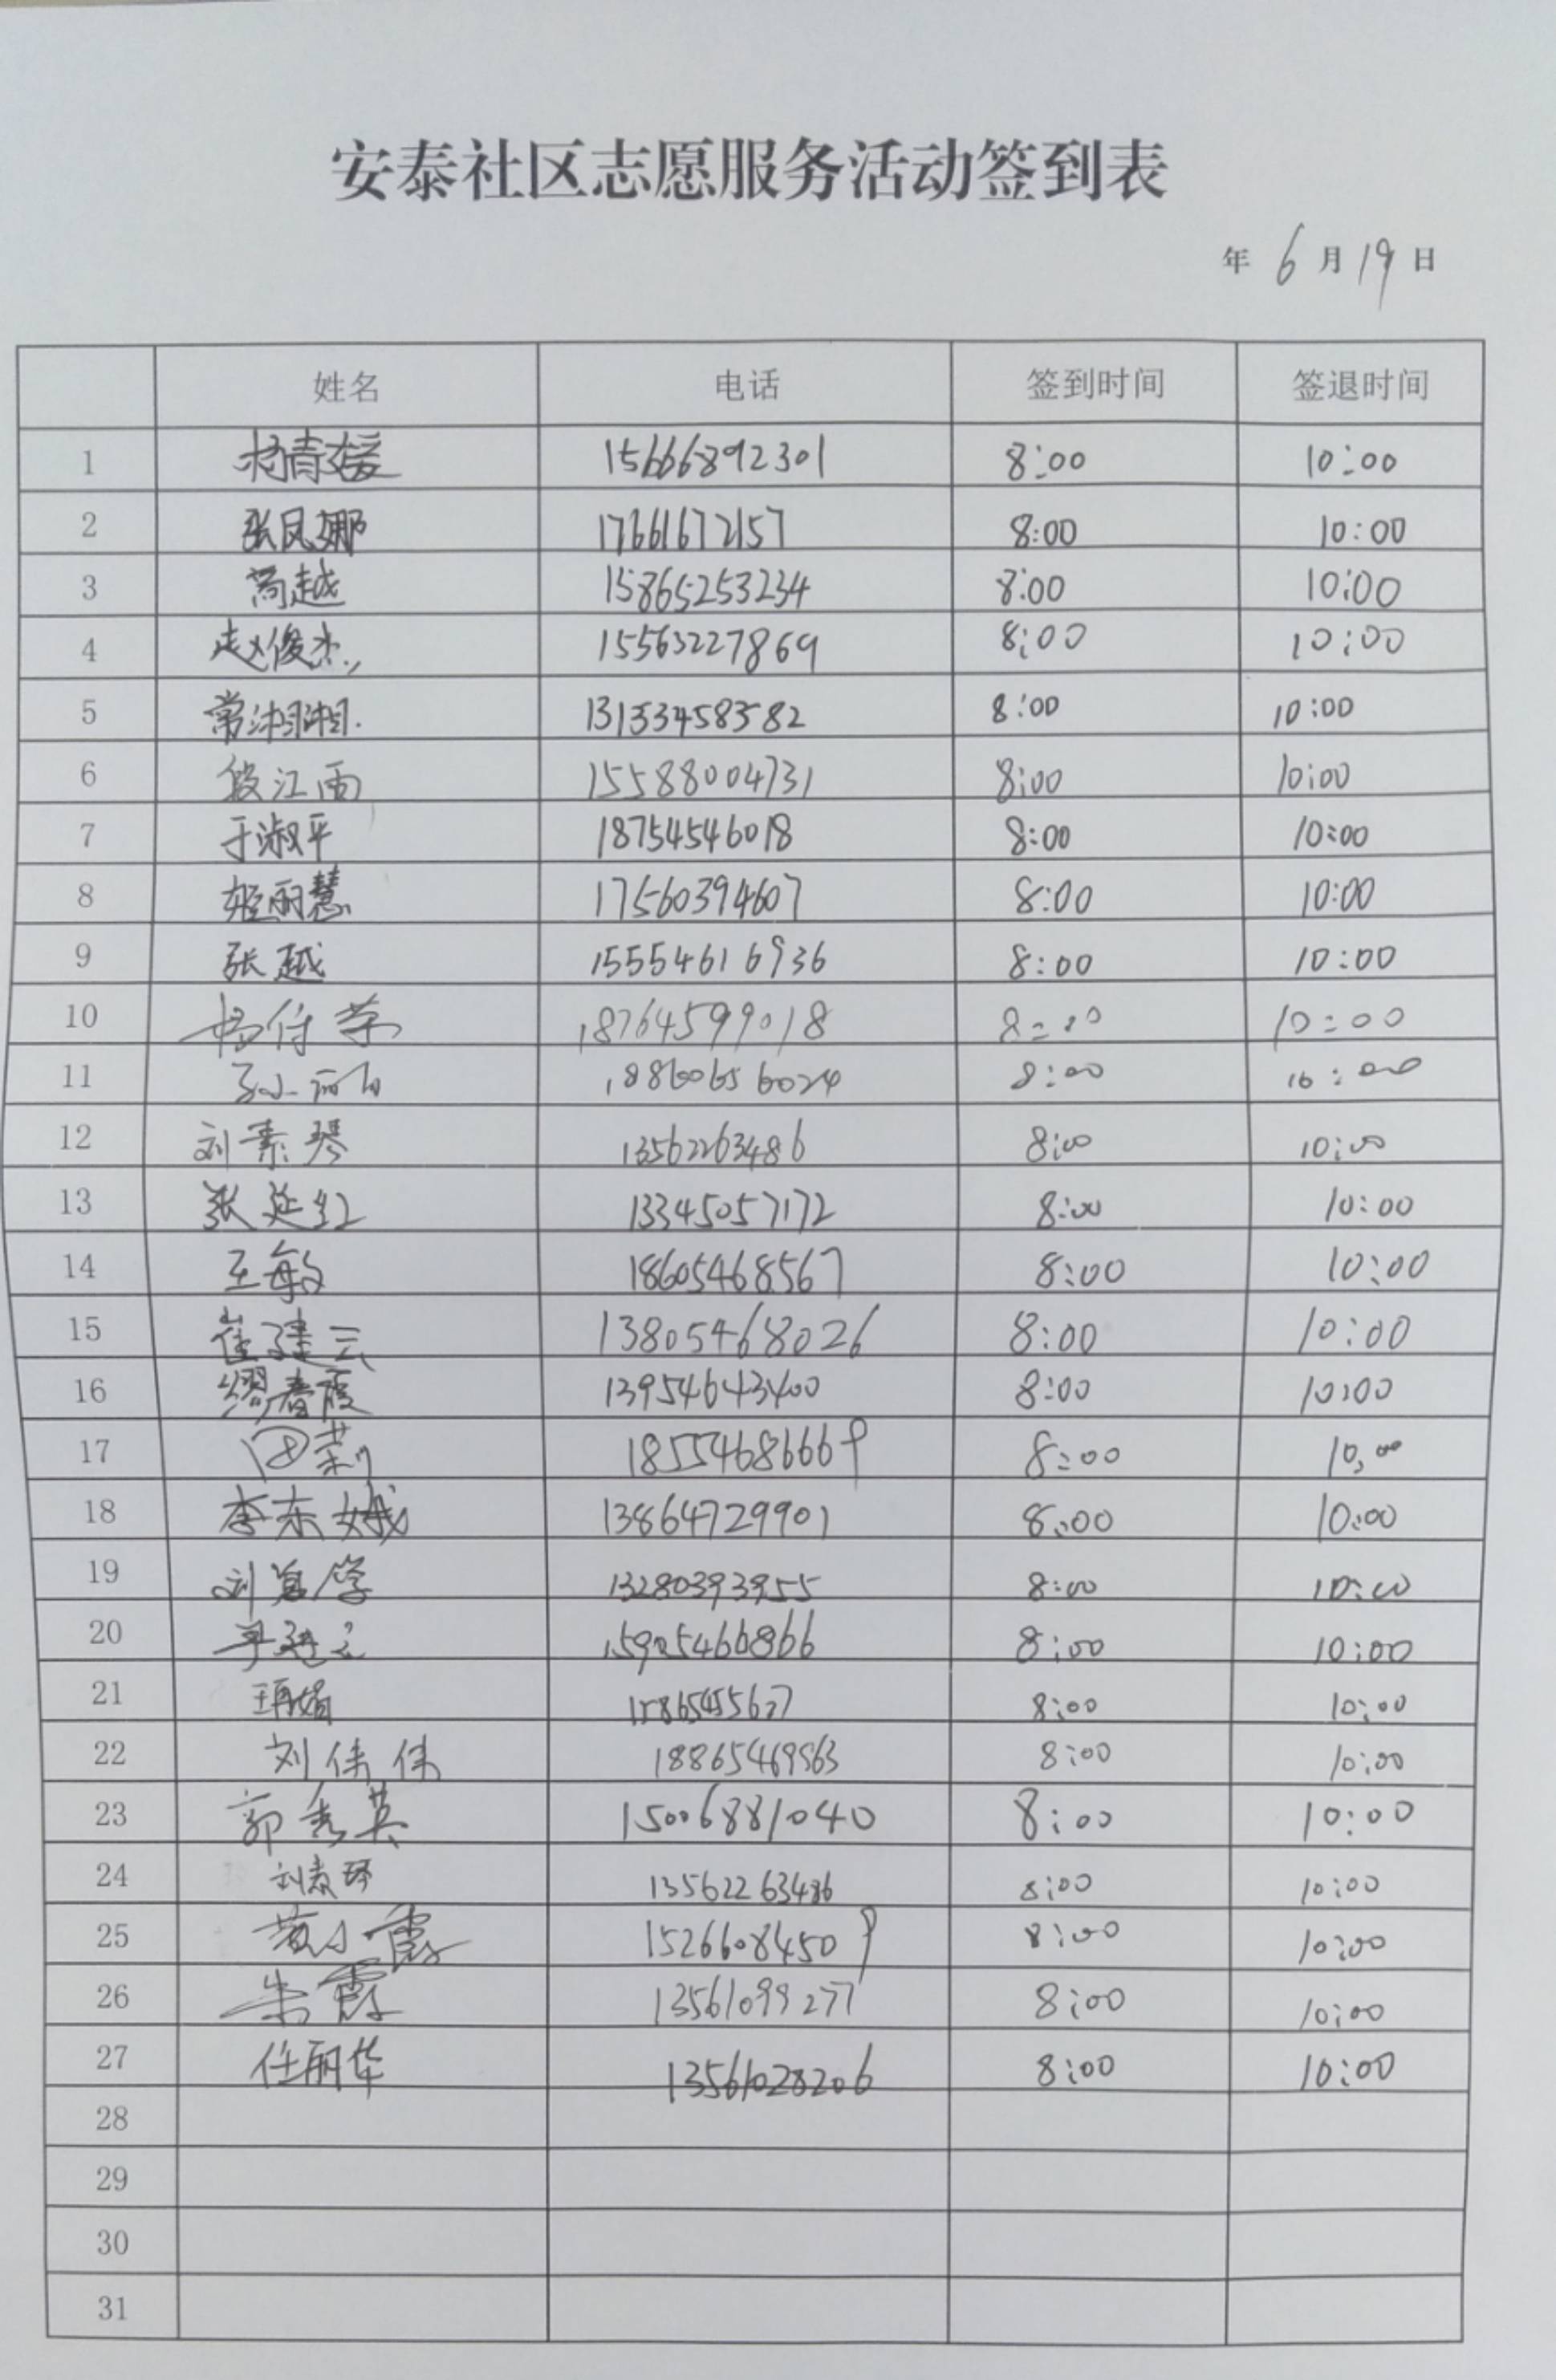 安泰社区志愿服务活动签到表
年 6 月 19 日
姓名 电话 签到时间 签退时间
1 杨青媛 15666892301 8:00 10:00
2 张凤娜 17661672157 8:00 10:00
3 尚越 15865253234 8:00 10:00
4 赵俊杰 15563227869 8:00 10:00
5 常湘湘 8:00 10:00
6 段江雨 15588004731 8:00 10:00
7 于淑平 18754546018 8:00 10:00
8 姬丽慧 17560394607 8:00 10:00
9 张越 15554616936 8:00 10:00
10 杨付荣 18764599018 8:00 10:00
11 18860656024 8:00 10:00
12 刘素琴 13562263486 8:00 10:00
13 张延红 13345057172 8:00 10:00
14 王敏 18605468567 8:00 10:00
15 崔建云 13805468026 8:00 10:00
16 缪春霞 13954643400 8:00 10:00
17 田莉 18554686669 8:00 10:00
18 李东娥 13864729901 8:00 10:00
19 刘 13280393955 8:00 10:00
20 15925466866 8:00 10:00
21 8:00 10:00
22 刘伟伟 18865469563 8:00 10:00
23 郭秀英 15006881040 8:00 10:00
24 刘素琴 13562263486 8:00 10:00
25 黄小霞 15266084509 8:00 10:00
26 朱霞 13561099277 8:00 10:00
27 任丽华 13561028206 8:00 10:00
28
29
30
31